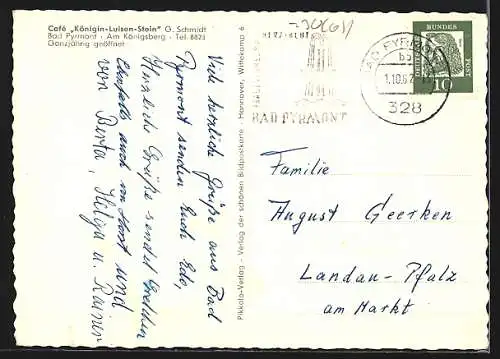 Café „Königin-Luisen-Stein" G. Schmidt
Bad Pyrmont · Am Königsberg · Tel. 8823
Ganzjährig geöffnet
Viele herzliche Grüße aus Bad
Pyrmont senden Euch
Herzliche Grüße sendet Gretchen
Ebenfalls auch von Horst und
von Berta, Helga u. Rainer
Pikkolo-Verlag - Verlag der schönen Bildpostkarte - Hannover, Wittekamp 6
BAD PYRMONT
BAD PYRMONT
1.10.62
328
DEUTSCHE BUNDESPOST
10
Familie
August Geerken
Landau-Pfalz
am Markt